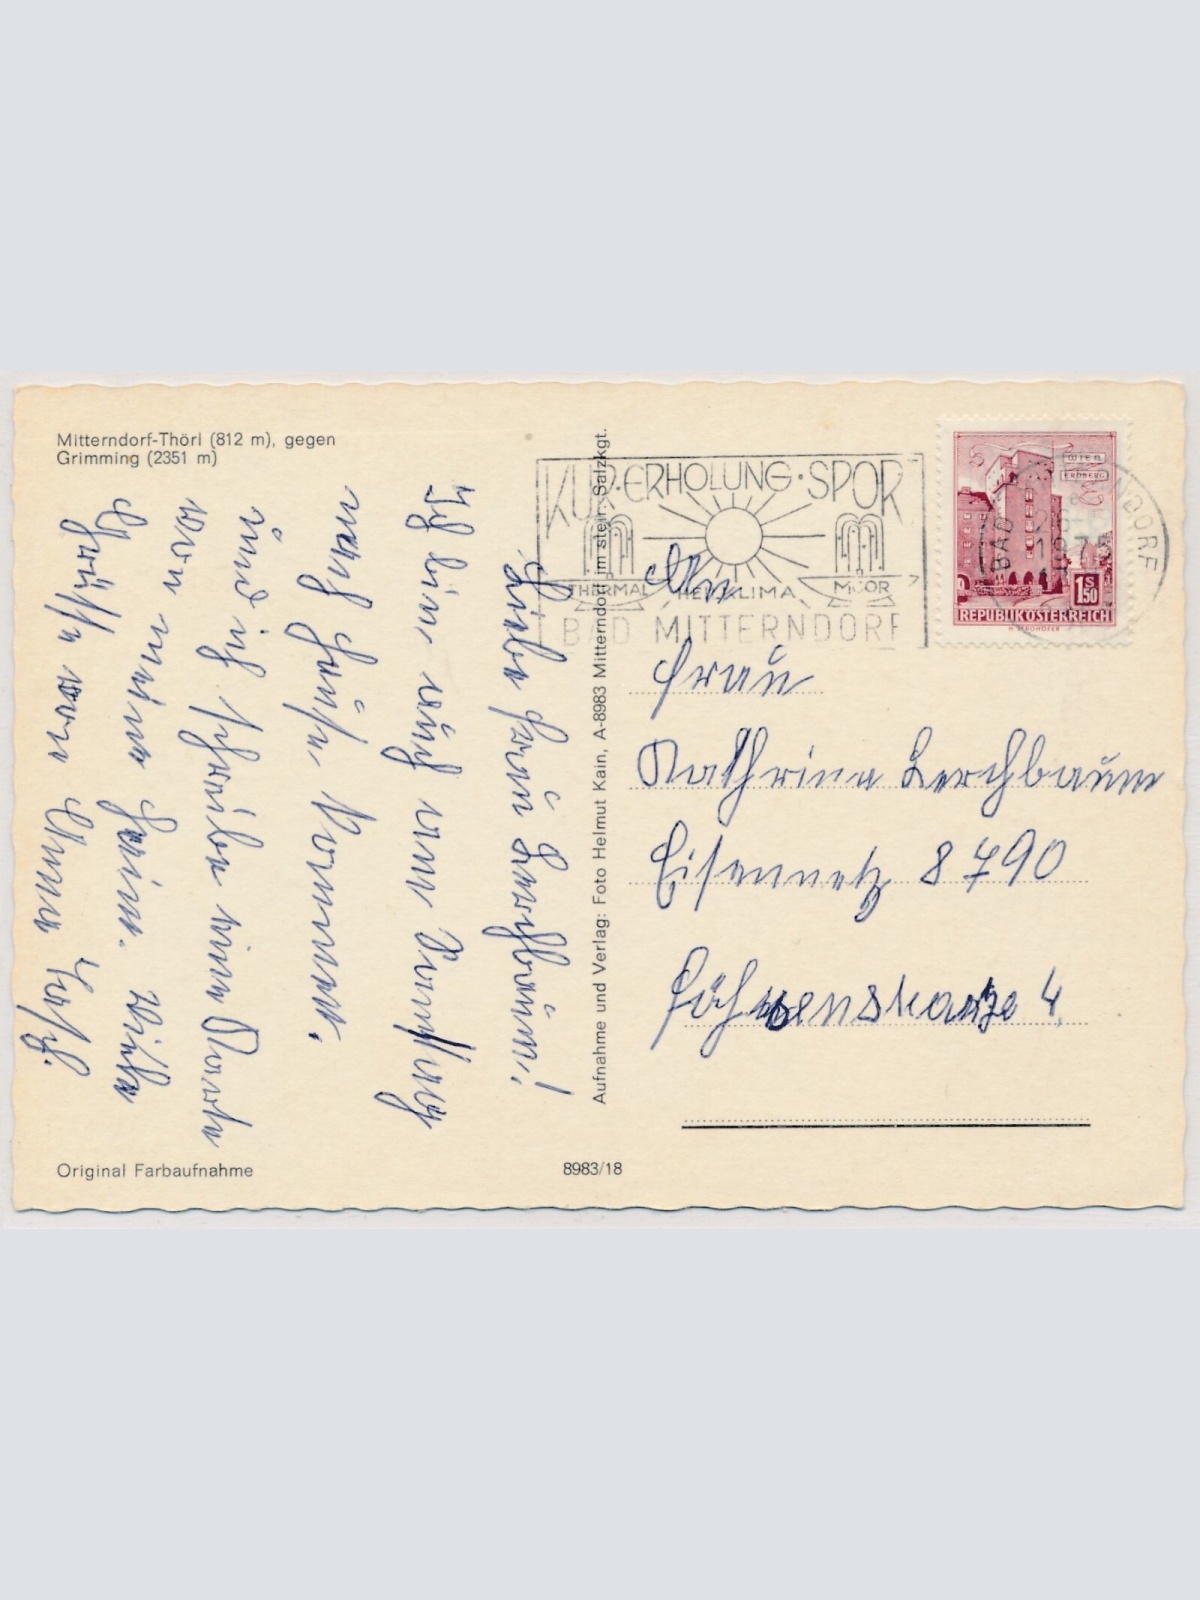 Mitterndorf-Thörl (812 m), gegen
Grimming (2351 m)
Liebe Frau Lerchbaum!
Ich bin auch am Sonntag
nach Hause kommen.
und ich schreibe eine Karte
von meine Heim. Viele
Grüße von Anna
Original Farbaufnahme
8983/18
Aufnahme und Verlag: Foto Helmut Kain, A-8983 Mitterndorf im steir. Salzkgt.
KUR·ERHOLUNG·SPORT
THERMAL HEILKLIMA MOOR
BAD MITTERNDORF
BAD MITTERNDORF
1975
WIEN
ERDBERG
1 S 50
REPUBLIK ÖSTERREICH
An
Frau
Kathrina Lerchbaum
Eisennerz 8790
4